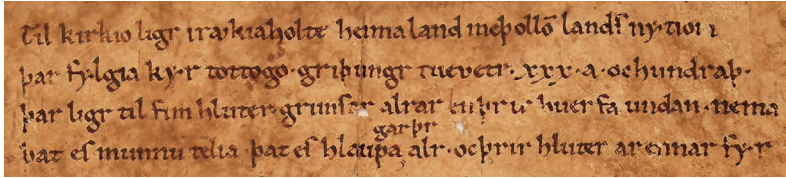 Til kirkio ligr i rækiaholte heimaland meþ ollō landſ ny·tiom
þar fylgia ky·r tottogo· griþungr tuevetr· xxx· a· oc hundraþ·
þar ligr til fim hluter· grimſar alrar en þrir huerfa undan· nema
þat eſ munnu telia· þat eſ hlaupa garþr alr· oc þrir hluter arennar fy·r